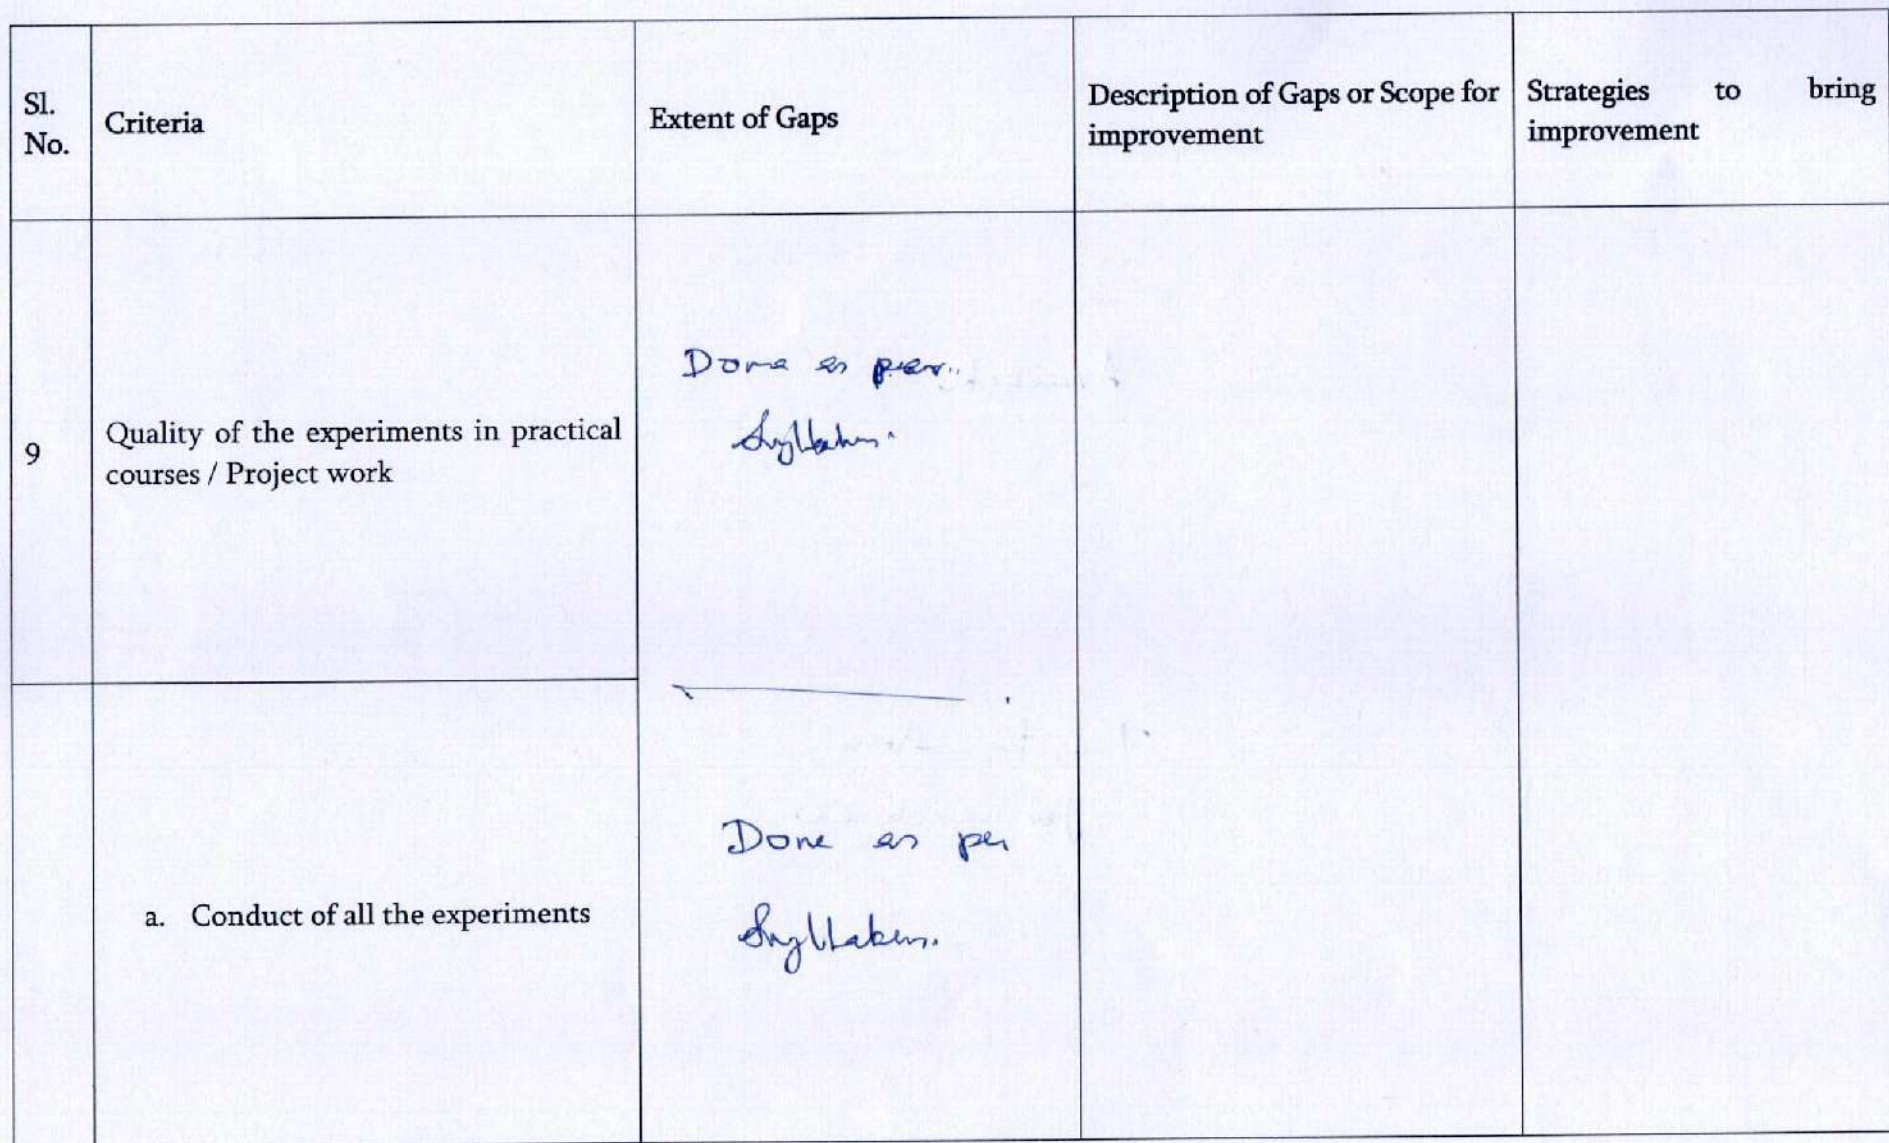 Sl.
No.
Criteria
Extent of Gaps
Description of Gaps or Scope for
improvement
Strategies to bring
improvement
9
Quality of the experiments in practical
courses / Project work
Done as per
Syllabus.
a. Conduct of all the experiments
Done as per
Syllabus.